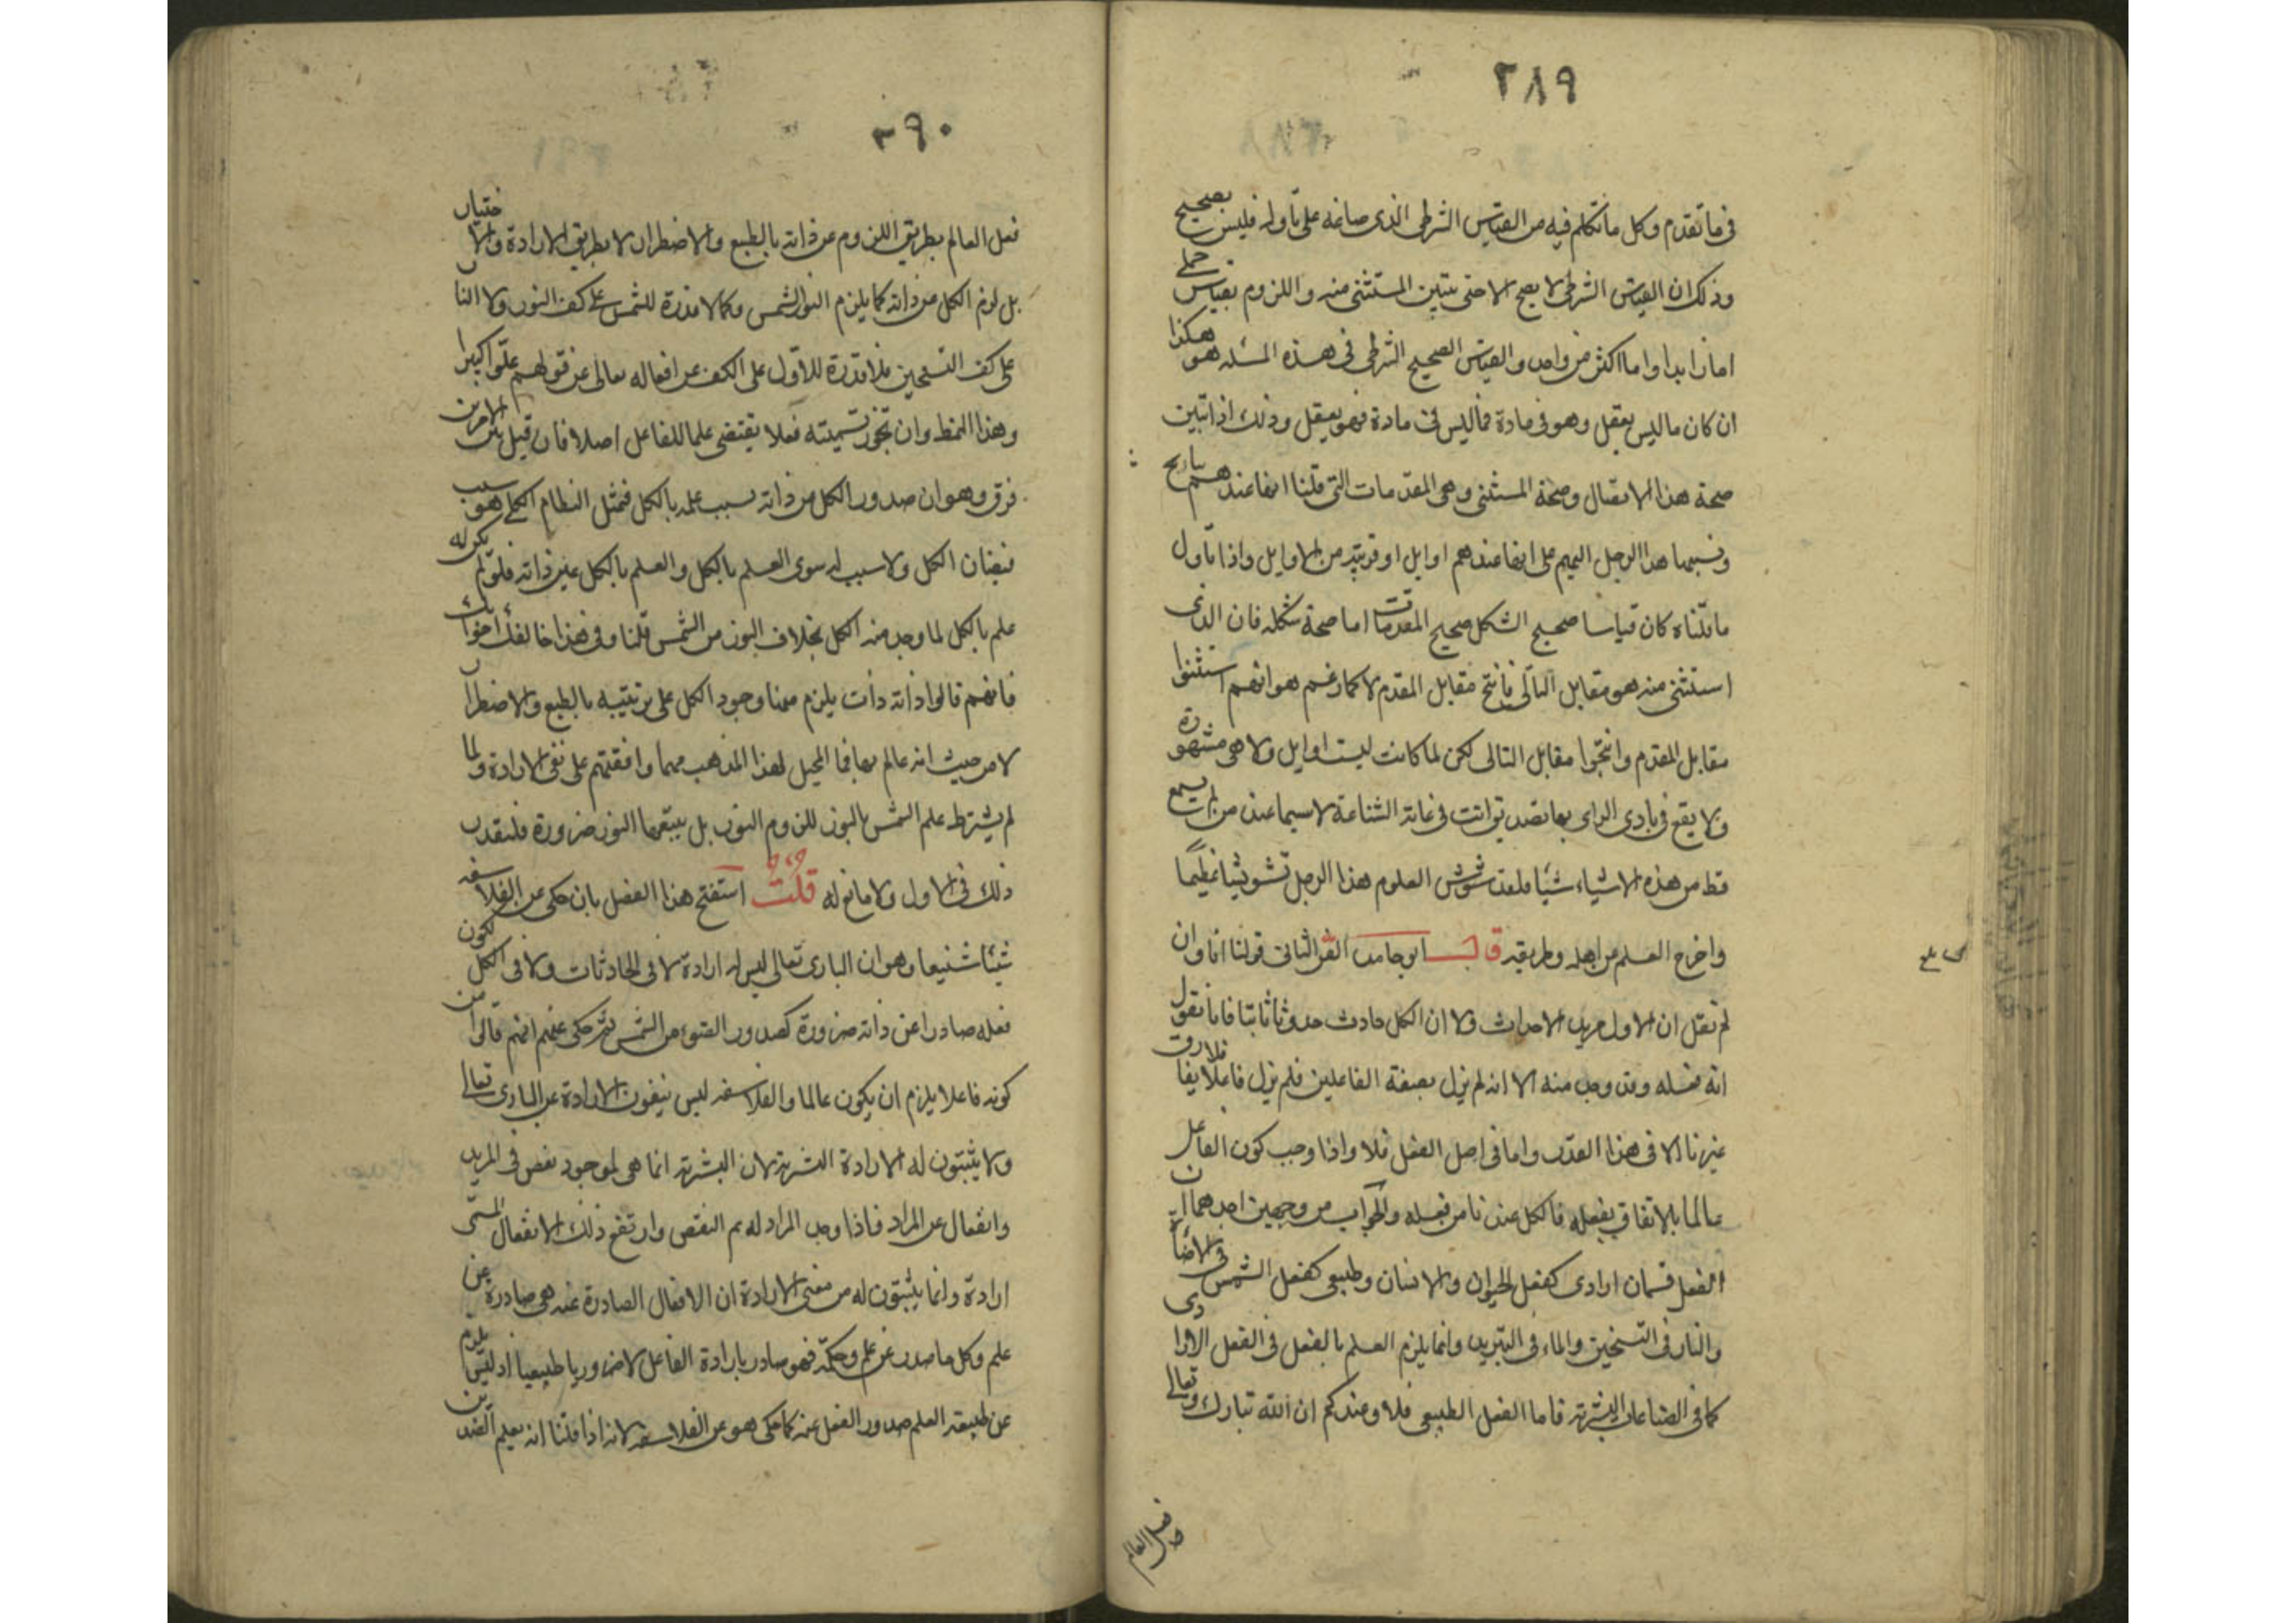 ٢٨٩
فى ما تقدم وكل ما تكلم فيه من القياس الشرطى الذى صاغه على تأوله فليس بصحيح
وذلك ان القياس الشرطى لا يصح الا حتى يتبين المستثنى منه واللزوم بقياس حملى
اما زايدا واما اكثر من واحد والقياس الصحيح الشرطى فى هذه المسئله هو هكذا
ان كان ما ليس يعقل وهو فى مادة فما ليس فى مادة فهو يعقل وذلك اذا تبين
صحة هذا الاتصال وصحة المستثنى وهى المقدمات التى قلنا انها عندهم نتايج
ونسبها هذا الرجل اليهم على انها عندهم اوايل او قريبة من الاوايل واذا تأول
ما قلناه كان قياسا صحيح الشكل صحيح المقدمات اما صحة شكله فان الذى
استثنى منه هو مقابل التالى فانتج مقابل المقدم لا كما زعم هو انهم استثنوا
مقابل المقدم وانتجوا مقابل التالى لكن لما كانت ليست اوايل ولا هى مشهورة
ولا يقع فى بادى الراى بها تصديق اتت فى غاية الشناعة لا سيما عند من لم يسمع
قط من هذه الاشياء شيئا فلقد شوش العلوم هذا الرجل تشويشا عظيما
واخرج العلم من اهله وطريقه قال ابو حامد الفن الثانى قولنا انا وان
لم نقل ان الاول مريد الاحداث ولا ان الكل حادث حدوثا ثابتا فانا نقول
انه فعله وقد وجد منه الا انه لم يزل بصفة الفاعلين فلم يزل فاعلا فلا يفارق
غيرنا الا فى هذا القدر واما فى اصل الفعل فلا واذا وجب كون الفاعل
عالما بالاتفاق بفعله فالكل عندنا من فعله والجواب من وجهين احدهما ان
الفعل قسمان ارادى كفعل الحيوان والانسان وطبيعى كفعل الشمس فى الاضأة
والنار فى التسخين والماء فى التبريد وانما يلزم العلم بالفعل فى الفعل الارادى
كما فى الصناعات البشرية فاما الفعل الطبيعى فلا وعندكم ان الله تبارك وتعالى
فعل العالم
٣٩٠
فعل العالم بطريق اللزوم عن ذاته بالطبع والاضطرار لا بطريق الارادة والاختيار
بل لزم الكل من ذاته كما يلزم النور الشمس وكما لا قدرة للشمس على كف النور ولا النار
على كف التسخين فلا قدرة للاول على الكف عن افعاله تعالى عن قولهم علوا كبيرا
وهذا النمط وان تجوز بتسميته فعلا يقتضى علما للفاعل اصلا فان قيل بين الامرين
فرق وهو ان صدور الكل من ذاته بسبب علمه بالكل فتمثل النظام الكلى هو سبب
فيضان الكل ولا سبب له سوى العلم بالكل والعلم بالكل عين ذاته فلو لم يكن له
علم بالكل لما وجد منه الكل بخلاف النور من الشمس قلنا وفى هذا خالفك اخوانك
فانهم قالوا ذاته ذات يلزم منها وجود الكل على ترتيبه بالطبع والاضطرار
لا من حيث انه عالم بها فما المحيل لهذا المذهب مهما وافقتم على نفى الارادة ولما
لم يشترط علم الشمس بالنور للزوم النور بل يتبعها النور ضرورة فليقدر
ذلك فى الاول ولا مانع له قلت استفتح هذا الفصل بان حكى عن الفلاسفه
شيئا شنيعا وهو ان البارى تعالى ليس له ارادة لا فى الحادثات ولا فى الكل لكون
فعله صادرا عن ذاته ضرورة كصدور الضوء من الشمس ثم حكى عنهم انهم قالوا من
كونه فاعلا يلزم ان يكون عالما والفلاسفه ليس ينفون الارادة عن البارى تعالى
ولا يثبتون له الارادة البشرية لان البشرية انما هى لوجود نقص فى المريد
وانفعال عن المراد فاذا وجد المراد له تم النقص وارتفع ذلك الانفعال المسمى
ارادة وانما يثبتون له من معنى الارادة ان الافعال الصادرة عنه هى صادرة عن
علم وكل ما صدر عن علم وحكمة فهو صادر بارادة الفاعل لا ضروريا طبيعيا اذ ليس يلزم
عن طبيعة العلم صدور الفعل عنه كما حكى هو عن الفلاسفه لانه اذا قلنا انه يعلم الضدين